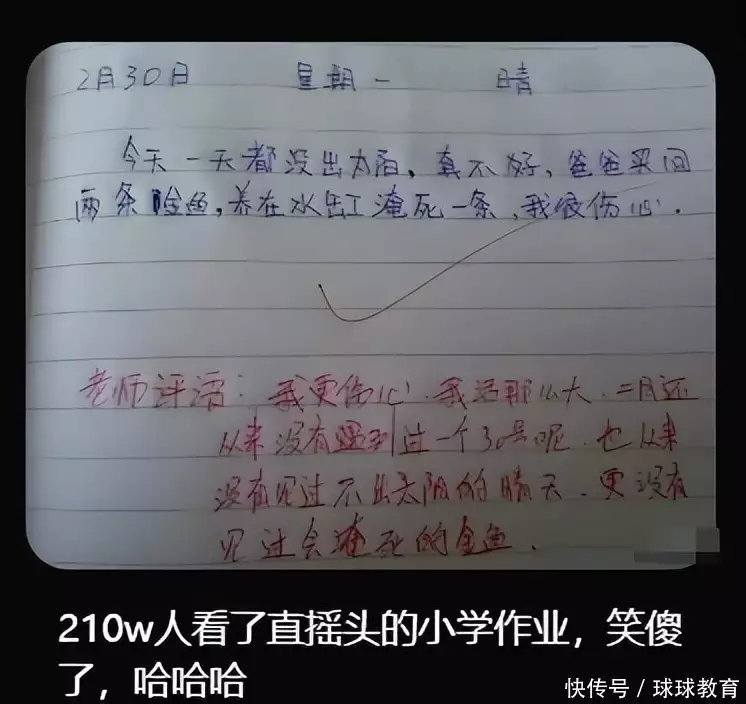 2月30日 星期一 晴
今天一天都没出太阳，真不好，爸爸买回
两条金鱼，养在水缸淹死一条，我很伤心．
老师评语：我更伤心．我活那么大．二月还
从来没有遇到过一个30号呢．也从来
没有见过不出太阳的晴天．更没有
见过会淹死的金鱼．
210w人看了直摇头的小学作业，笑傻
了，哈哈哈
快传号 / 球球教育